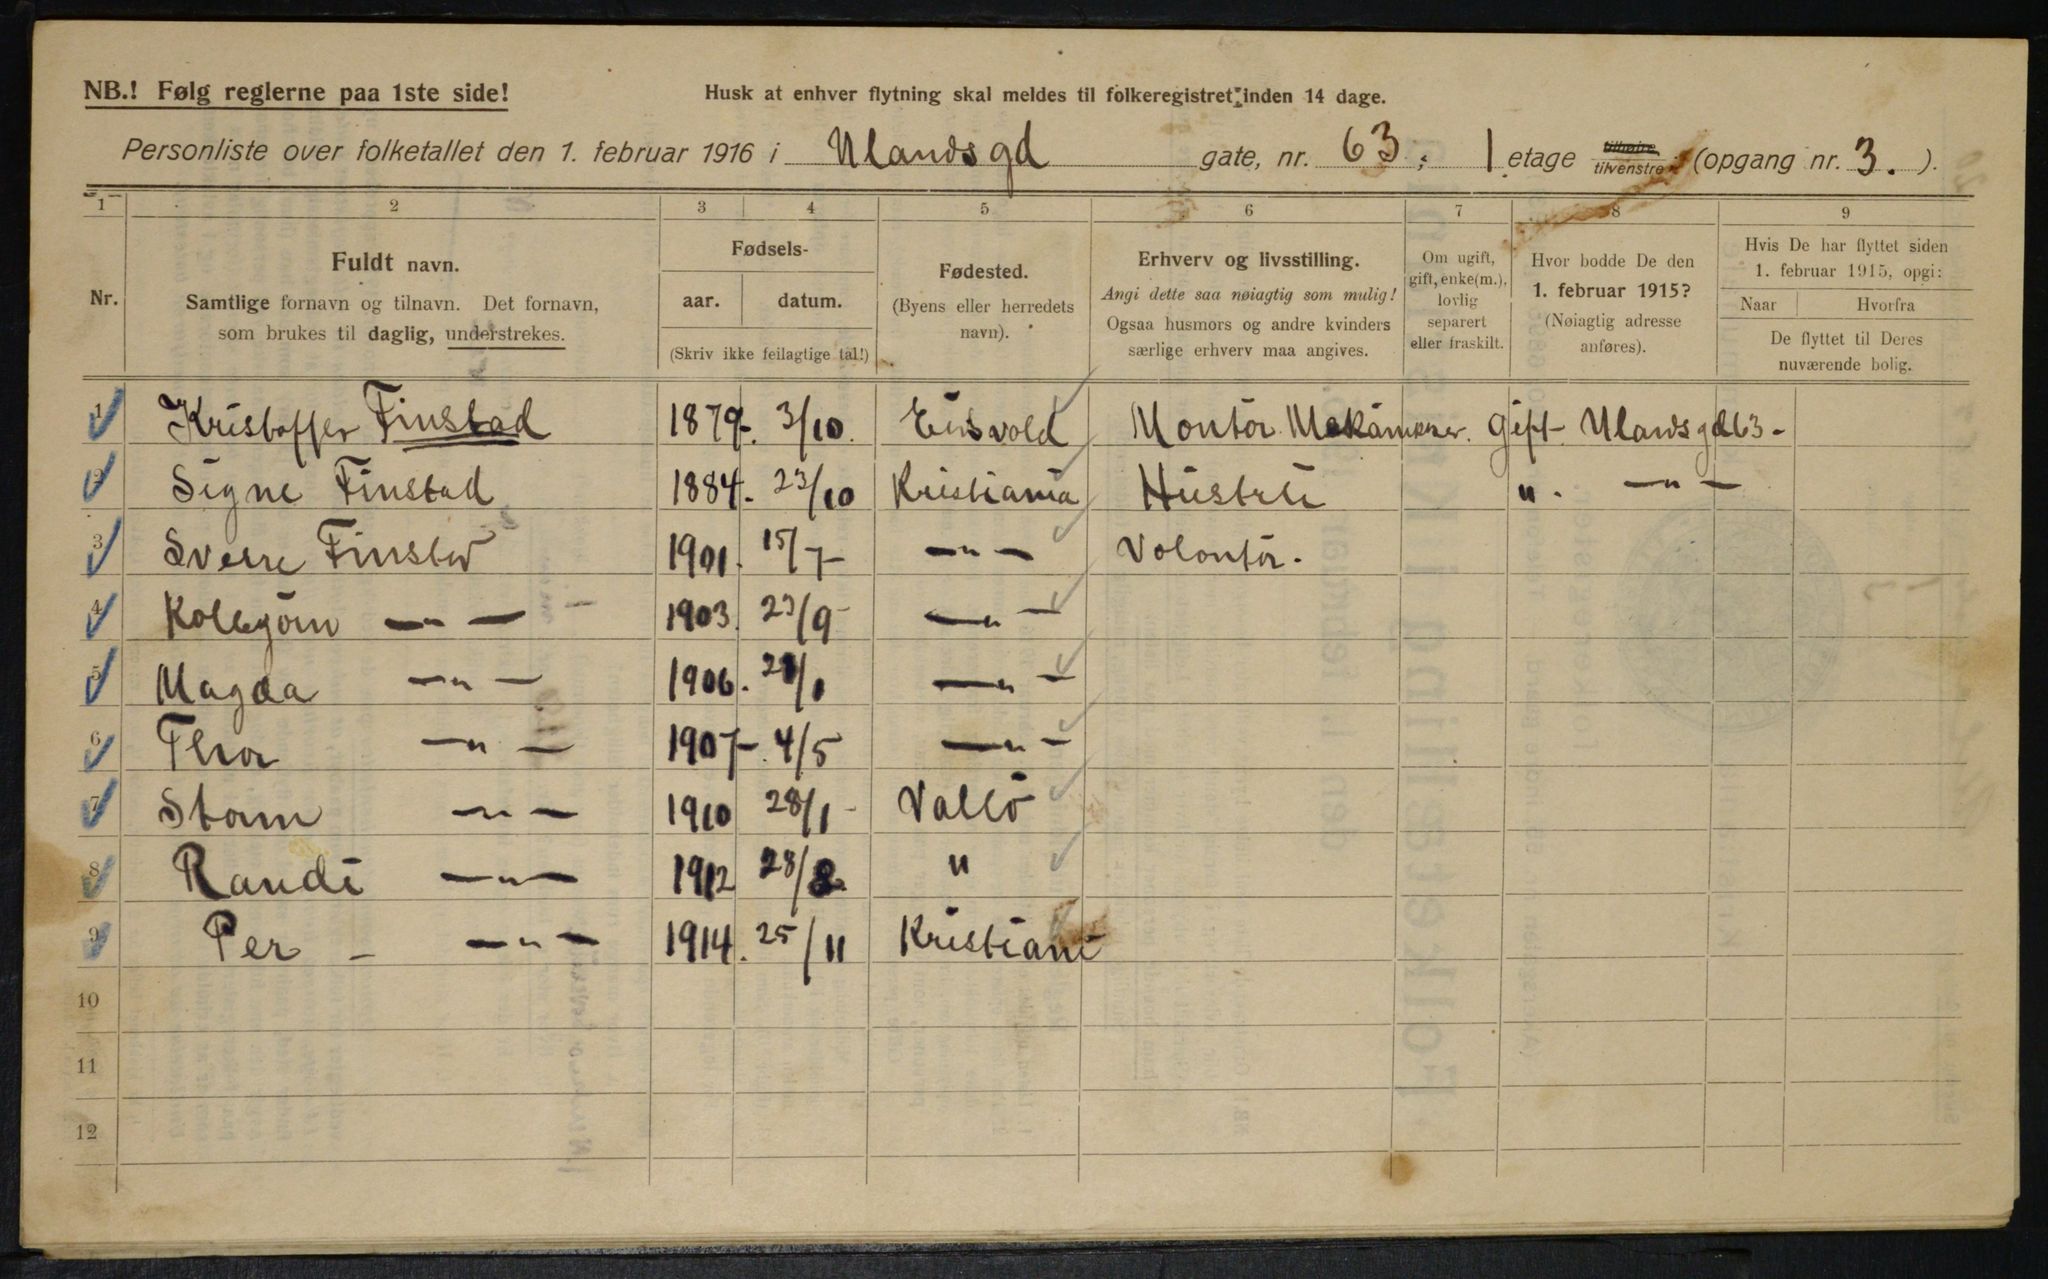 NB.! Følg reglerne paa 1ste side!
Husk at enhver flytning skal meldes til folkeregistret inden 14 dage.
Personliste over folketallet den 1. februar 1916 i Ulandsgd gate, nr. 63, 1 etage tilhøire tilvenstre (opgang nr. 3.).
1 2 3 4 5 6 7 8 9
Nr.
Fuldt navn.
Samtlige fornavn og tilnavn. Det fornavn,
som brukes til daglig, understrekes.
Fødsels-
aar. datum.
(Skriv ikke feilagtige tal!)
Fødested.
(Byens eller herredets
navn).
Erhverv og livsstilling.
Angi dette saa nøiagtig som mulig!
Ogsaa husmors og andre kvinders
særlige erhverv maa angives.
Om ugift,
gift, enke(m.),
lovlig
separert
eller fraskilt.
Hvor bodde De den
1. februar 1915?
(Nøiagtig adresse
anføres).
Hvis De har flyttet siden
1. februar 1915, opgi:
Naar Hvorfra
De flyttet til Deres
nuværende bolig.
1 Kristoffer Finstad 1879. 3/10. Eidsvold Montør Mekaniker. Gift Ulandsgd 63 -
2 Signe Finstad 1884. 23/10 Kristiania Hustru " . — " —
3 Sverre Finstad 1901. 15/7 — " — Volontør.
4 — " — 1903. 23/9 — " —
5 Magda — " — 1906. 28/1 — " —
6 Thor — " — 1907 - 4/5 — " —
7 — " — 1910 28/1 Vallö
8 Randi — " — 1912 28/8 "
9 Per - — " — 1914. 25/11 Kristiani
10
11
12